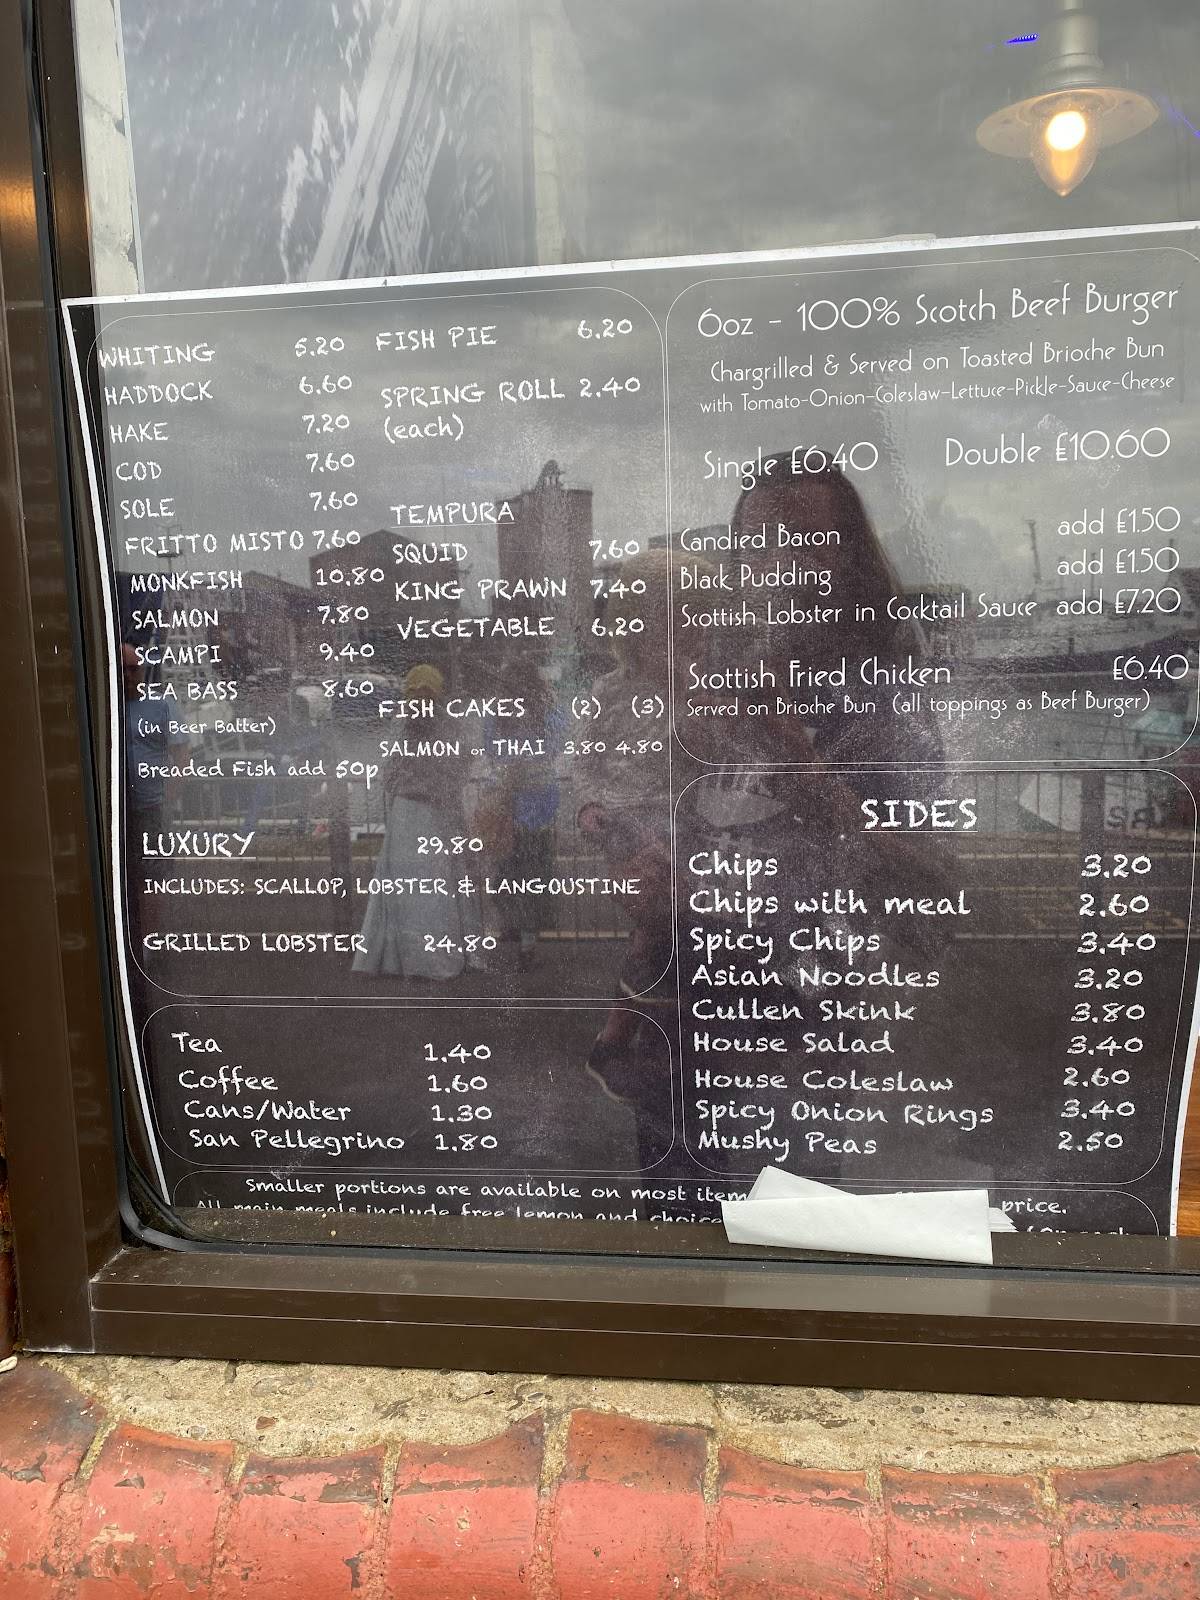 WHITING 5.20
HADDOCK 6.60
HAKE 7.20
COD 7.60
SOLE 7.60
FRITTO MISTO 7.60
MONKFISH 10.80
SALMON 7.80
SCAMPI 9.40
SEA BASS 8.60
(in Beer Batter)
Breaded Fish add 50p
FISH PIE 6.20
SPRING ROLL 2.40
(each)
TEMPURA
SQUID 7.60
KING PRAWN 7.40
VEGETABLE 6.20
FISH CAKES (2) (3)
SALMON or THAI 3.80 4.80
LUXURY 29.80
INCLUDES: SCALLOP, LOBSTER & LANGOUSTINE
GRILLED LOBSTER 24.80
Tea 1.40
Coffee 1.60
Cans/Water 1.30
San Pellegrino 1.80
6oz - 100% Scotch Beef Burger
Chargrilled & Served on Toasted Brioche Bun
with Tomato-Onion-Coleslaw-Lettuce-Pickle-Sauce-Cheese
Single £6.40 Double £10.60
Candied Bacon add £1.50
Black Pudding add £1.50
Scottish Lobster in Cocktail Sauce add £7.20
Scottish Fried Chicken £6.40
Served on Brioche Bun (all toppings as Beef Burger)
SIDES
Chips 3.20
Chips with meal 2.60
Spicy Chips 3.40
Asian Noodles 3.20
Cullen Skink 3.80
House Salad 3.40
House Coleslaw 2.60
Spicy Onion Rings 3.40
Mushy Peas 2.50
Smaller portions are available on most item price.
All main meals include free lemon and choice